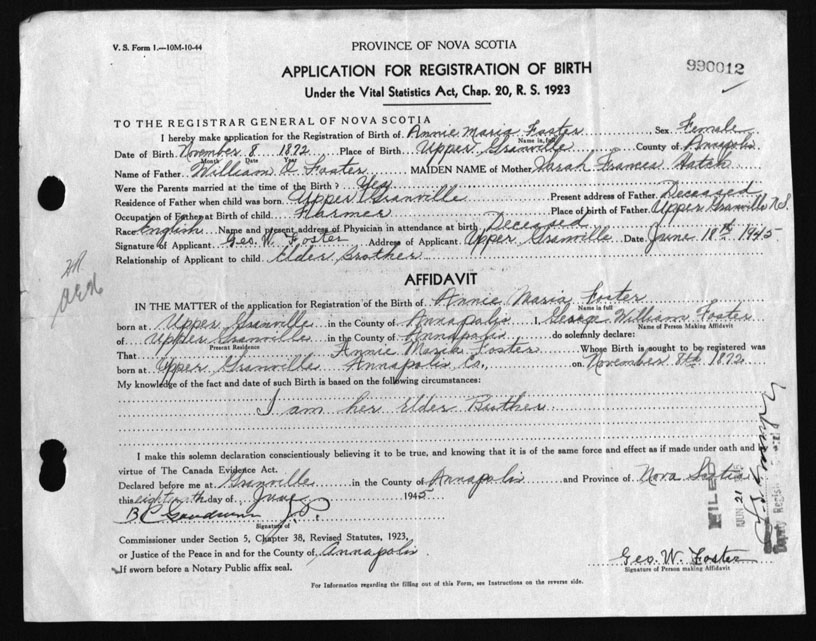 V. S. Form 1.—10M-10-44
PROVINCE OF NOVA SCOTIA
990012
APPLICATION FOR REGISTRATION OF BIRTH
Under the Vital Statistics Act, Chap. 20, R. S. 1923
TO THE REGISTRAR GENERAL OF NOVA SCOTIA
I hereby make application for the Registration of Birth of Annie Maria Foster, Sex Female
Name in full
Date of Birth November 8 1872 Place of Birth Upper Granville County of Annapolis
Month Date Year
Name of Father William Foster MAIDEN NAME of Mother Sarah Frances Hatch
Were the Parents married at the time of the Birth? Yes
Residence of Father when child was born Upper Granville Present address of Father Deceased
Occupation of Father at Birth of child Farmer Place of birth of Father Upper Granville N.S.
Race English Name and present address of Physician in attendance at birth Deceased
Signature of Applicant Geo. W. Foster Address of Applicant Upper Granville Date June 18th 1945
Relationship of Applicant to child Elder Brother
AFFIDAVIT
IN THE MATTER of the application for Registration of the Birth of Annie Maria Foster
Name in full
born at Upper Granville in the County of Annapolis I, George William Foster
Name of Person Making Affidavit
of Upper Granville in the County of Annapolis do solemnly declare:
Present Residence
That Annie Maria Foster Whose Birth is sought to be registered was
born at Upper Granville Annapolis Co. on November 8th 1872
My knowledge of the fact and date of such Birth is based on the following circumstances:
I am her Elder Brother
I make this solemn declaration conscientiously believing it to be true, and knowing that it is of the same force and effect as if made under oath and by
virtue of The Canada Evidence Act.
Declared before me at Granville in the County of Annapolis and Province of Nova Scotia
this eighteenth day of June 1945
B C Goodwin J.P.
Signature of
Commissioner under Section 5, Chapter 38, Revised Statutes, 1923,
or Justice of the Peace in and for the County of Annapolis
If sworn before a Notary Public affix seal.
Geo. W. Foster
Signature of Person making Affidavit
For Information regarding the filling out of this Form, see Instructions on the reverse side.
FILED
JUN 21
Deputy Registrar